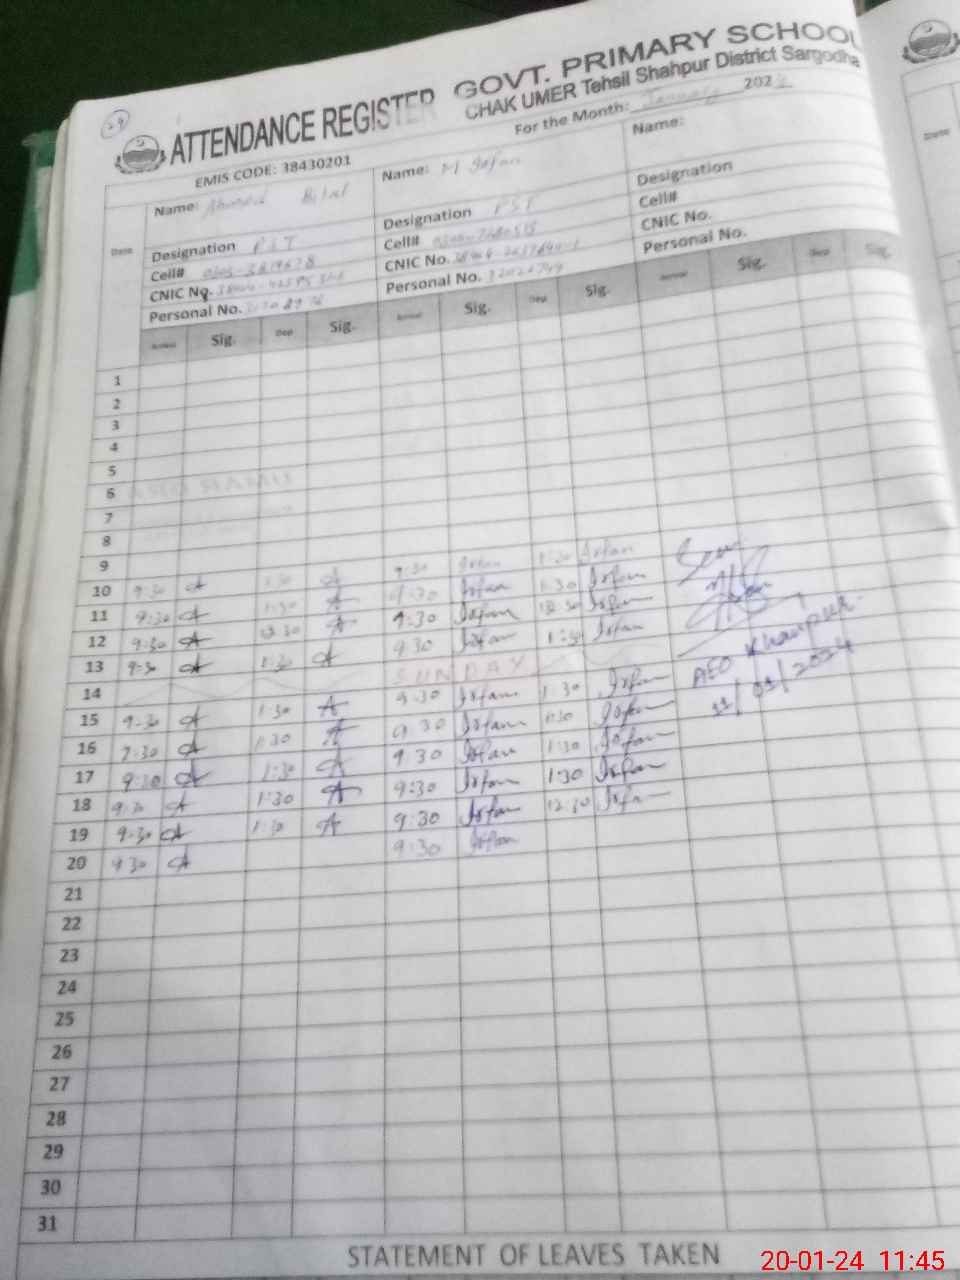 29
GOVT. PRIMARY SCHOOL
ATTENDANCE REGISTER CHAK UMER Tehsil Shahpur District Sargodha
EMIS CODE: 38430201 For the Month: January 202
Date Name: Ahmed Bilal Name: M Irfan Name:
Designation PST Designation PST Designation
Cell# Cell# Cell#
CNIC No. CNIC No. CNIC No.
Personal No. Personal No. Personal No.
Arrival Sig. Dep Sig. Arrival Sig. Dep Sig. Arrival Sig. Dep Sig.
1
2
3
4
5
6
7
8
9
10 9:30 A 1:30 A 9:30 Irfan 1:30 Irfan
11 9:30 A 1:30 A 9:30 Irfan 1:30 Irfan
12 9:30 A 12:30 A 9:30 Irfan 12:30 Irfan
13 9:30 A 1:30 A 9:30 Irfan 1:30 Irfan
14 SUNDAY
15 9:30 A 1:30 A 9:30 Irfan 1:30 Irfan
16 9:30 A 1:30 A 9:30 Irfan 1:30 Irfan
17 9:30 A 1:30 A 9:30 Irfan 1:30 Irfan
18 9:30 A 1:30 A 9:30 Irfan 1:30 Irfan
19 9:30 A 1:30 A 9:30 Irfan 12:30 Irfan
20 9:30 A 9:30 Irfan
AEO Khanpur
11/01/2024
21
22
23
24
25
26
27
28
29
30
31
STATEMENT OF LEAVES TAKEN
20-01-24 11:45